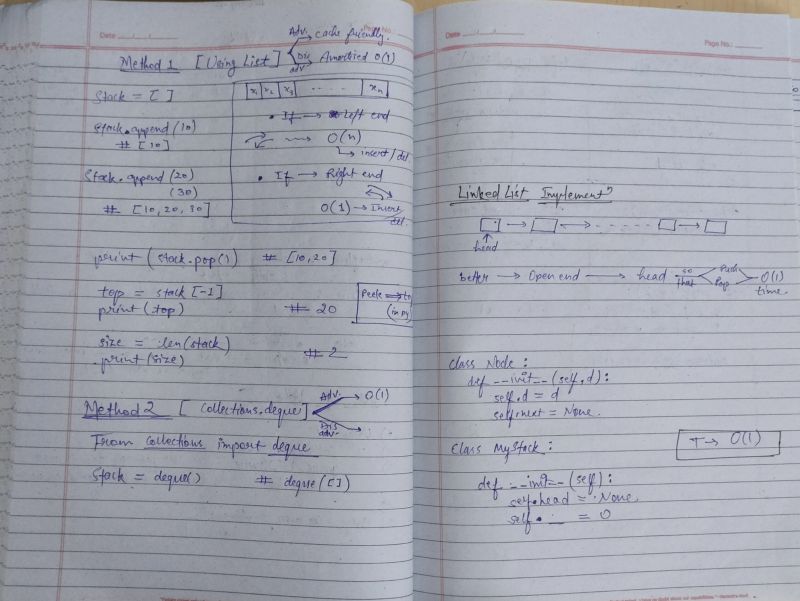 Date
Page No.
Adv. cache friendly.
Method 1 [Using List]
Dis adv. Amortized O(1)
Stack = [ ]
x1 x2 x3 ...... xn
stack.append(10)
# [10]
• If → Left end
O(n)
insert/del
Stack.append(20)
(30)
# [10, 20, 30]
• If → Right end
O(1) → Insert
del.
print(stack.pop()) # [10,20]
top = stack[-1]
print(top) # 20
Peek
size = len(stack)
print(size) # 2
Method 2 [collections.deque]
Adv. → O(1)
Dis adv.
From collections import deque
Stack = deque() # deque([])
Date
Page No.:
Linked List Implement?
head
better → Open end → head so that Push Pop O(1) time.
Class Node:
def __init__(self, d):
self.d = d
self.next = None.
Class MyStack:
T → O(1)
def __init__(self):
self.head = None
self. __ = 0